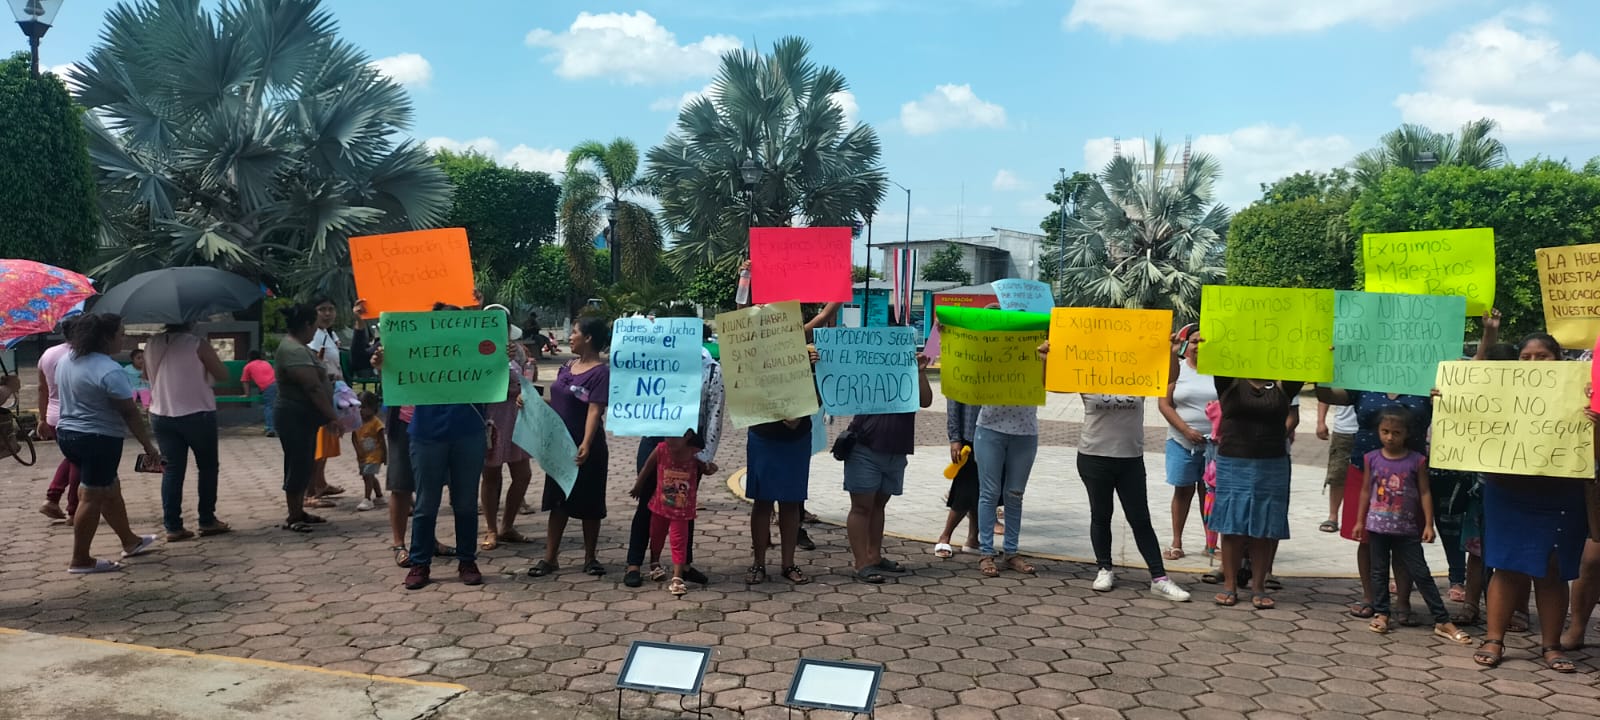 La Educación Es
Prioridad
"MAS DOCENTES
MEJOR
EDUCACIÓN"
Padres en lucha
porque el
Gobierno
NO
escucha
NUNCA HABRA
JUSTA EDUCACION
SI NO
EN IGUALDAD
DE
Exigimos Una
Respuesta
NO PODEMOS SEGUIR
CON EL PREESCOLAR
CERRADO
EXIGIMOS
POR PARTE DE LA
Exigimos que se cumpla
el articulo 3° de la
Constitución
Exigimos
Maestros
Titulados!
Llevamos Mas
De 15 días
Sin Clases
LOS NIÑOS
TIENEN DERECHO
UNA EDUCACIÓN
DE CALIDAD"
Exigimos
Maestros
Base
"LA
NUESTRA
EDUCACIÓN
NUESTRO
NUESTROS
NIÑOS NO
PUEDEN SEGUIR
SIN "CLASES"